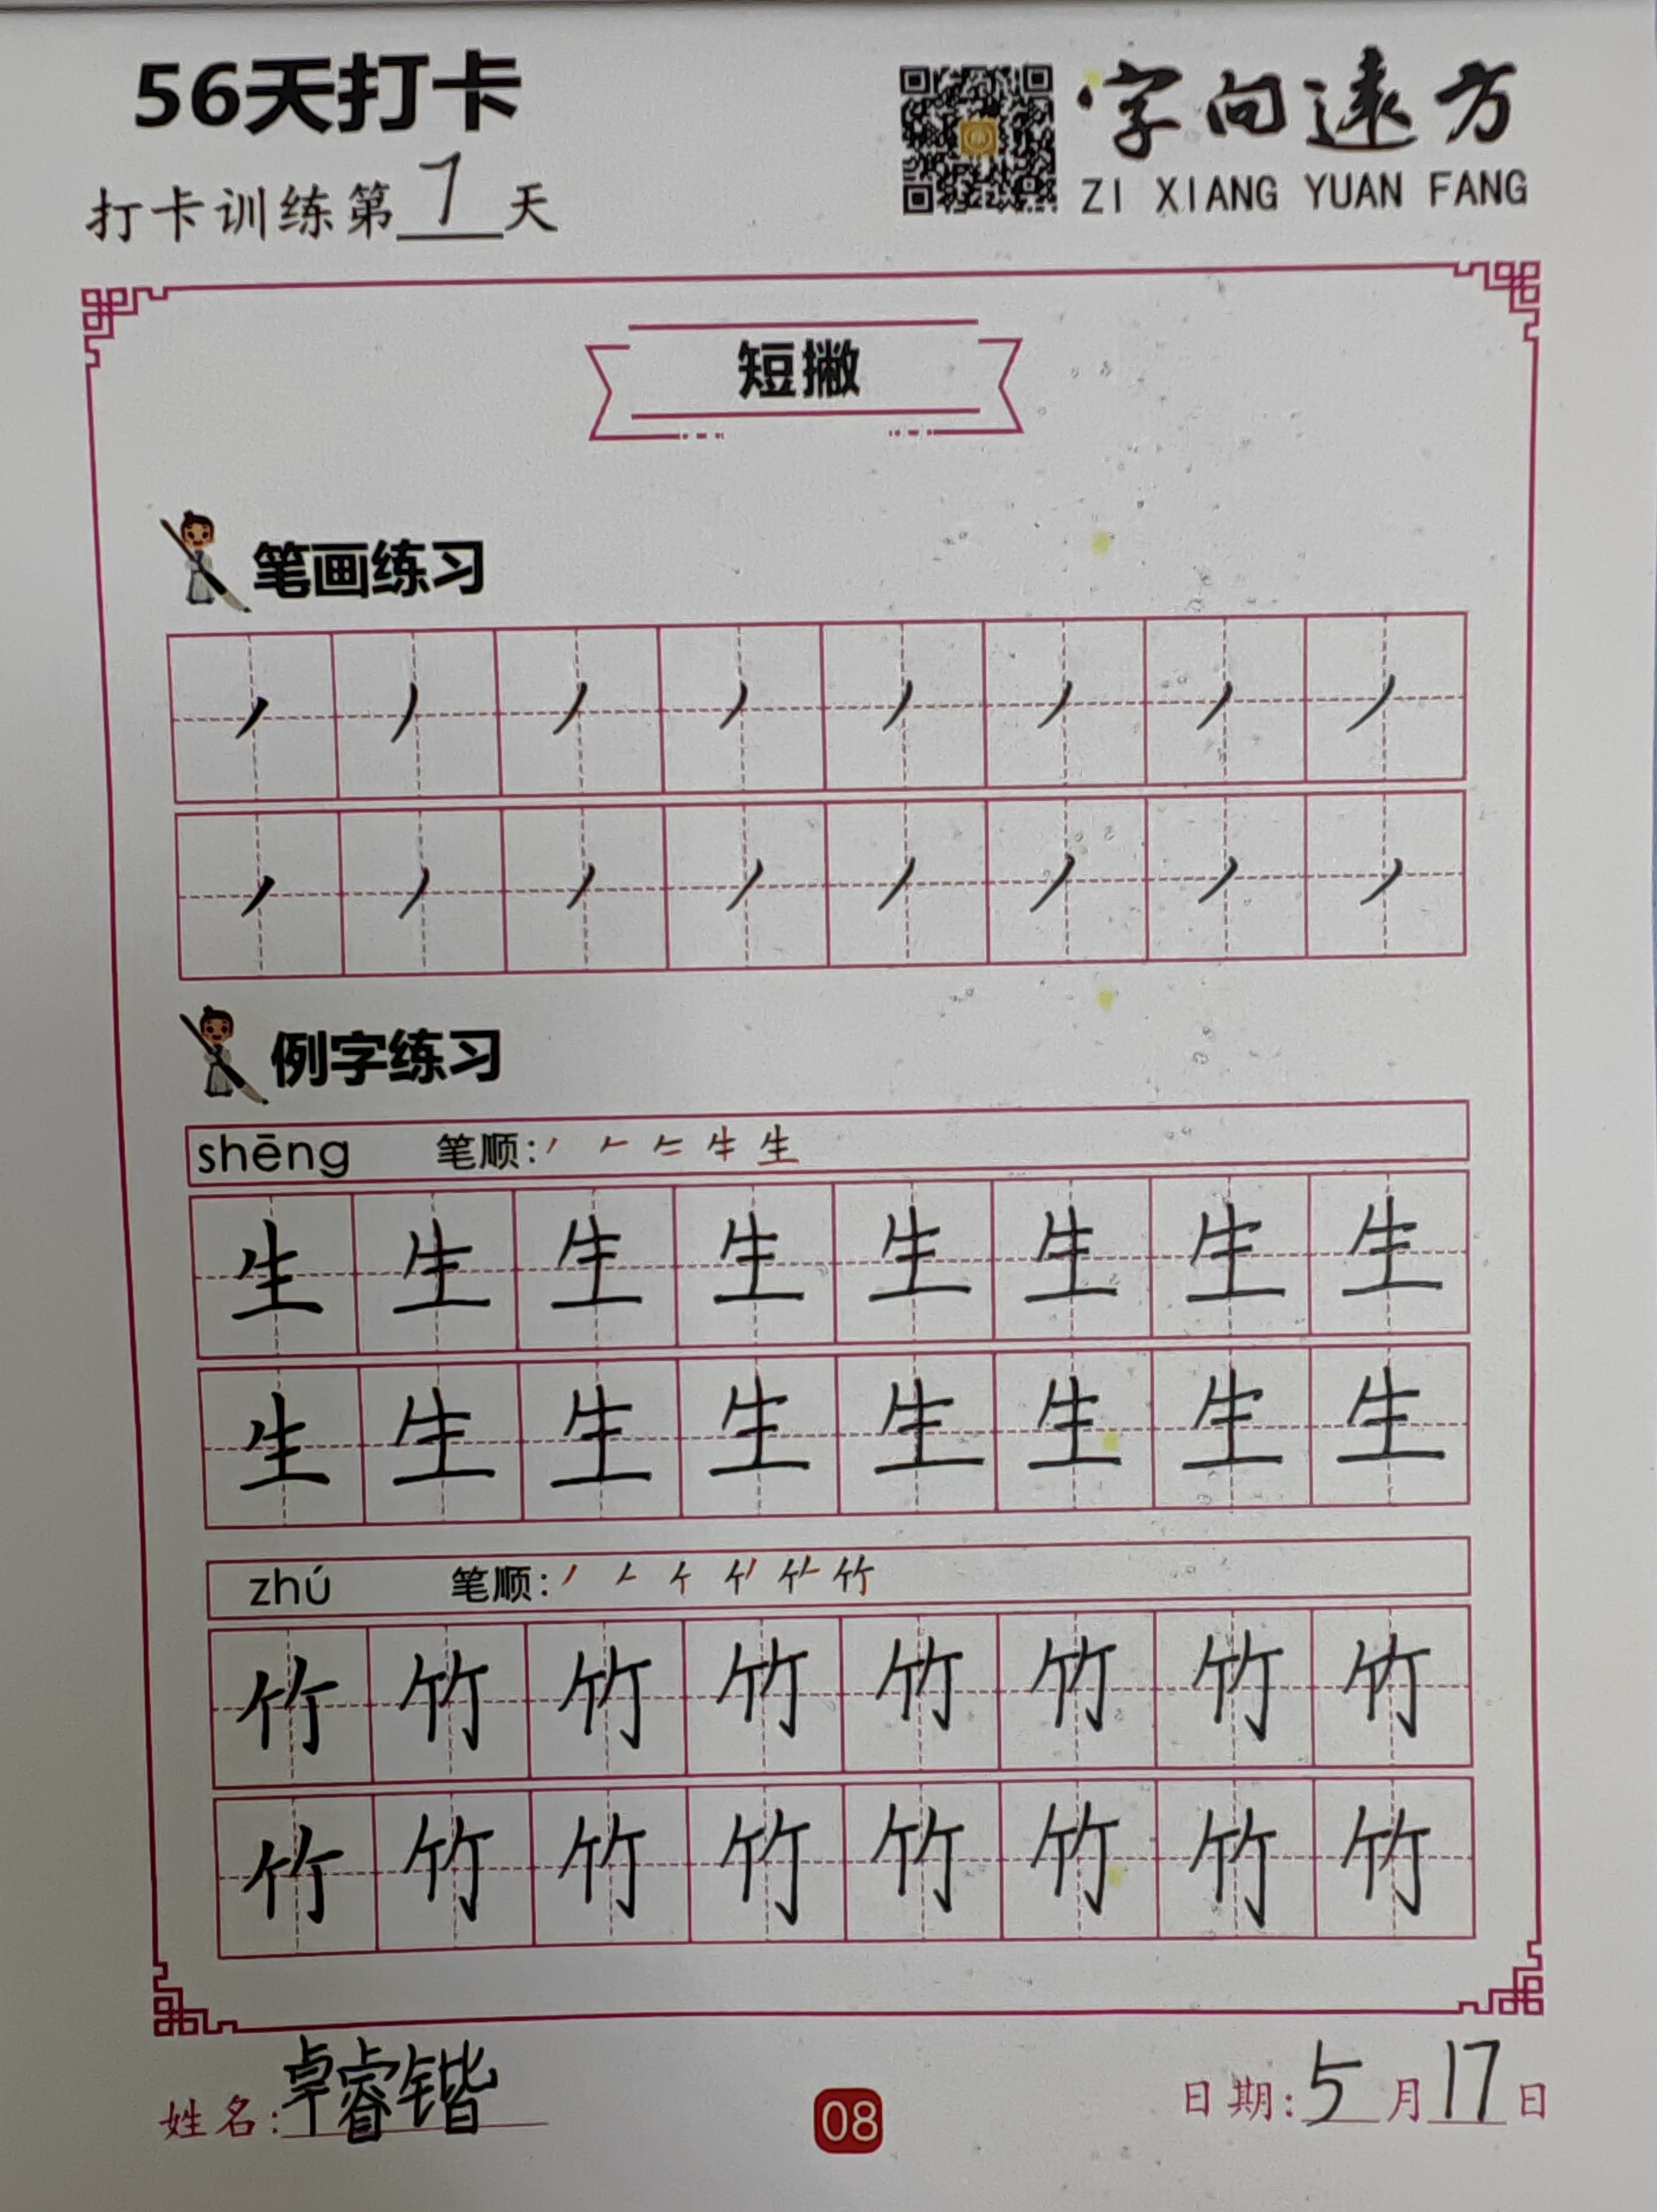 56天打卡
字向远方
打卡训练第7天
ZI XIANG YUAN FANG
短撇
笔画练习
丿 丿 丿 丿 丿 丿 丿 丿
丿 丿 丿 丿 丿 丿 丿 丿
例字练习
shēng 笔顺: 生
生 生 生 生 生 生 生 生
生 生 生 生 生 生 生 生
zhú 笔顺: 竹
竹 竹 竹 竹 竹 竹 竹 竹
竹 竹 竹 竹 竹 竹 竹 竹
姓名:卓睿锴
08
日期:5月17日